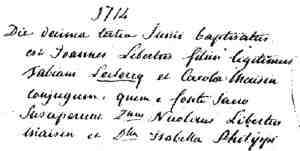 1714
Die decima tertia Junii baptisatus
est Joannes Libertus filius legitimus
Fabiani Leclercq et Carolæ Maisin
conjugum, quem e fonte sacro
susceperunt Dnus Nicolaus Libertus
Maisin et Dlla Isabella Philippi